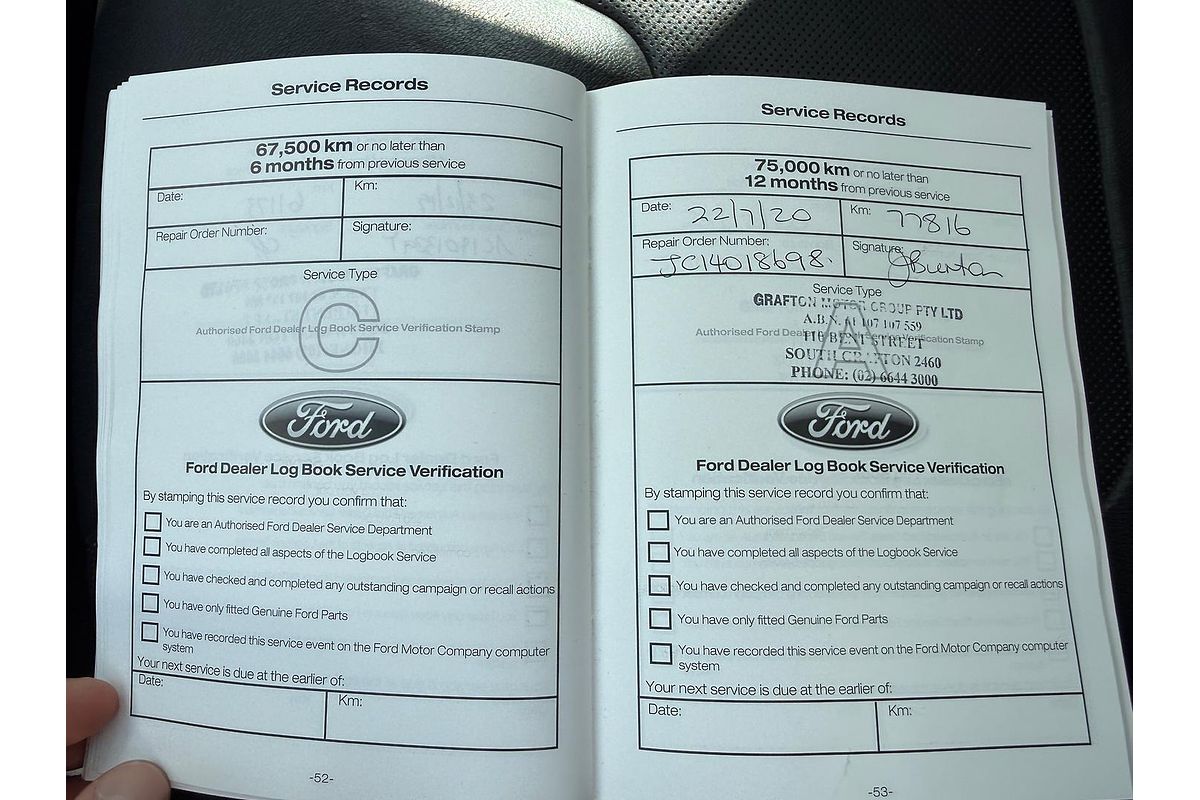 Service Records
67,500 km or no later than
6 months from previous service
Date:
Km:
Repair Order Number:
Signature:
Service Type
C
Authorised Ford Dealer Log Book Service Verification Stamp
Ford
Ford Dealer Log Book Service Verification
By stamping this service record you confirm that:
You are an Authorised Ford Dealer Service Department
You have completed all aspects of the Logbook Service
You have checked and completed any outstanding campaign or recall actions
You have only fitted Genuine Ford Parts
You have recorded this service event on the Ford Motor Company computer
system
Your next service is due at the earlier of:
Date:
Km:
-52-
Service Records
75,000 km or no later than
12 months from previous service
Date: 22/7/20
Km: 77816
Repair Order Number:
JC14018698.
Signature:
JBurton
Service Type
GRAFTON MOTOR GROUP PTY LTD
A.B.N. 61 107 107 559
A
Authorised Ford Dealer Log Book Service Verification Stamp
110 BENT STREET
SOUTH GRAFTON 2460
PHONE: (02) 6644 3000
Ford
Ford Dealer Log Book Service Verification
By stamping this service record you confirm that:
You are an Authorised Ford Dealer Service Department
You have completed all aspects of the Logbook Service
You have checked and completed any outstanding campaign or recall actions
You have only fitted Genuine Ford Parts
You have recorded this service event on the Ford Motor Company computer
system
Your next service is due at the earlier of:
Date:
Km:
-53-